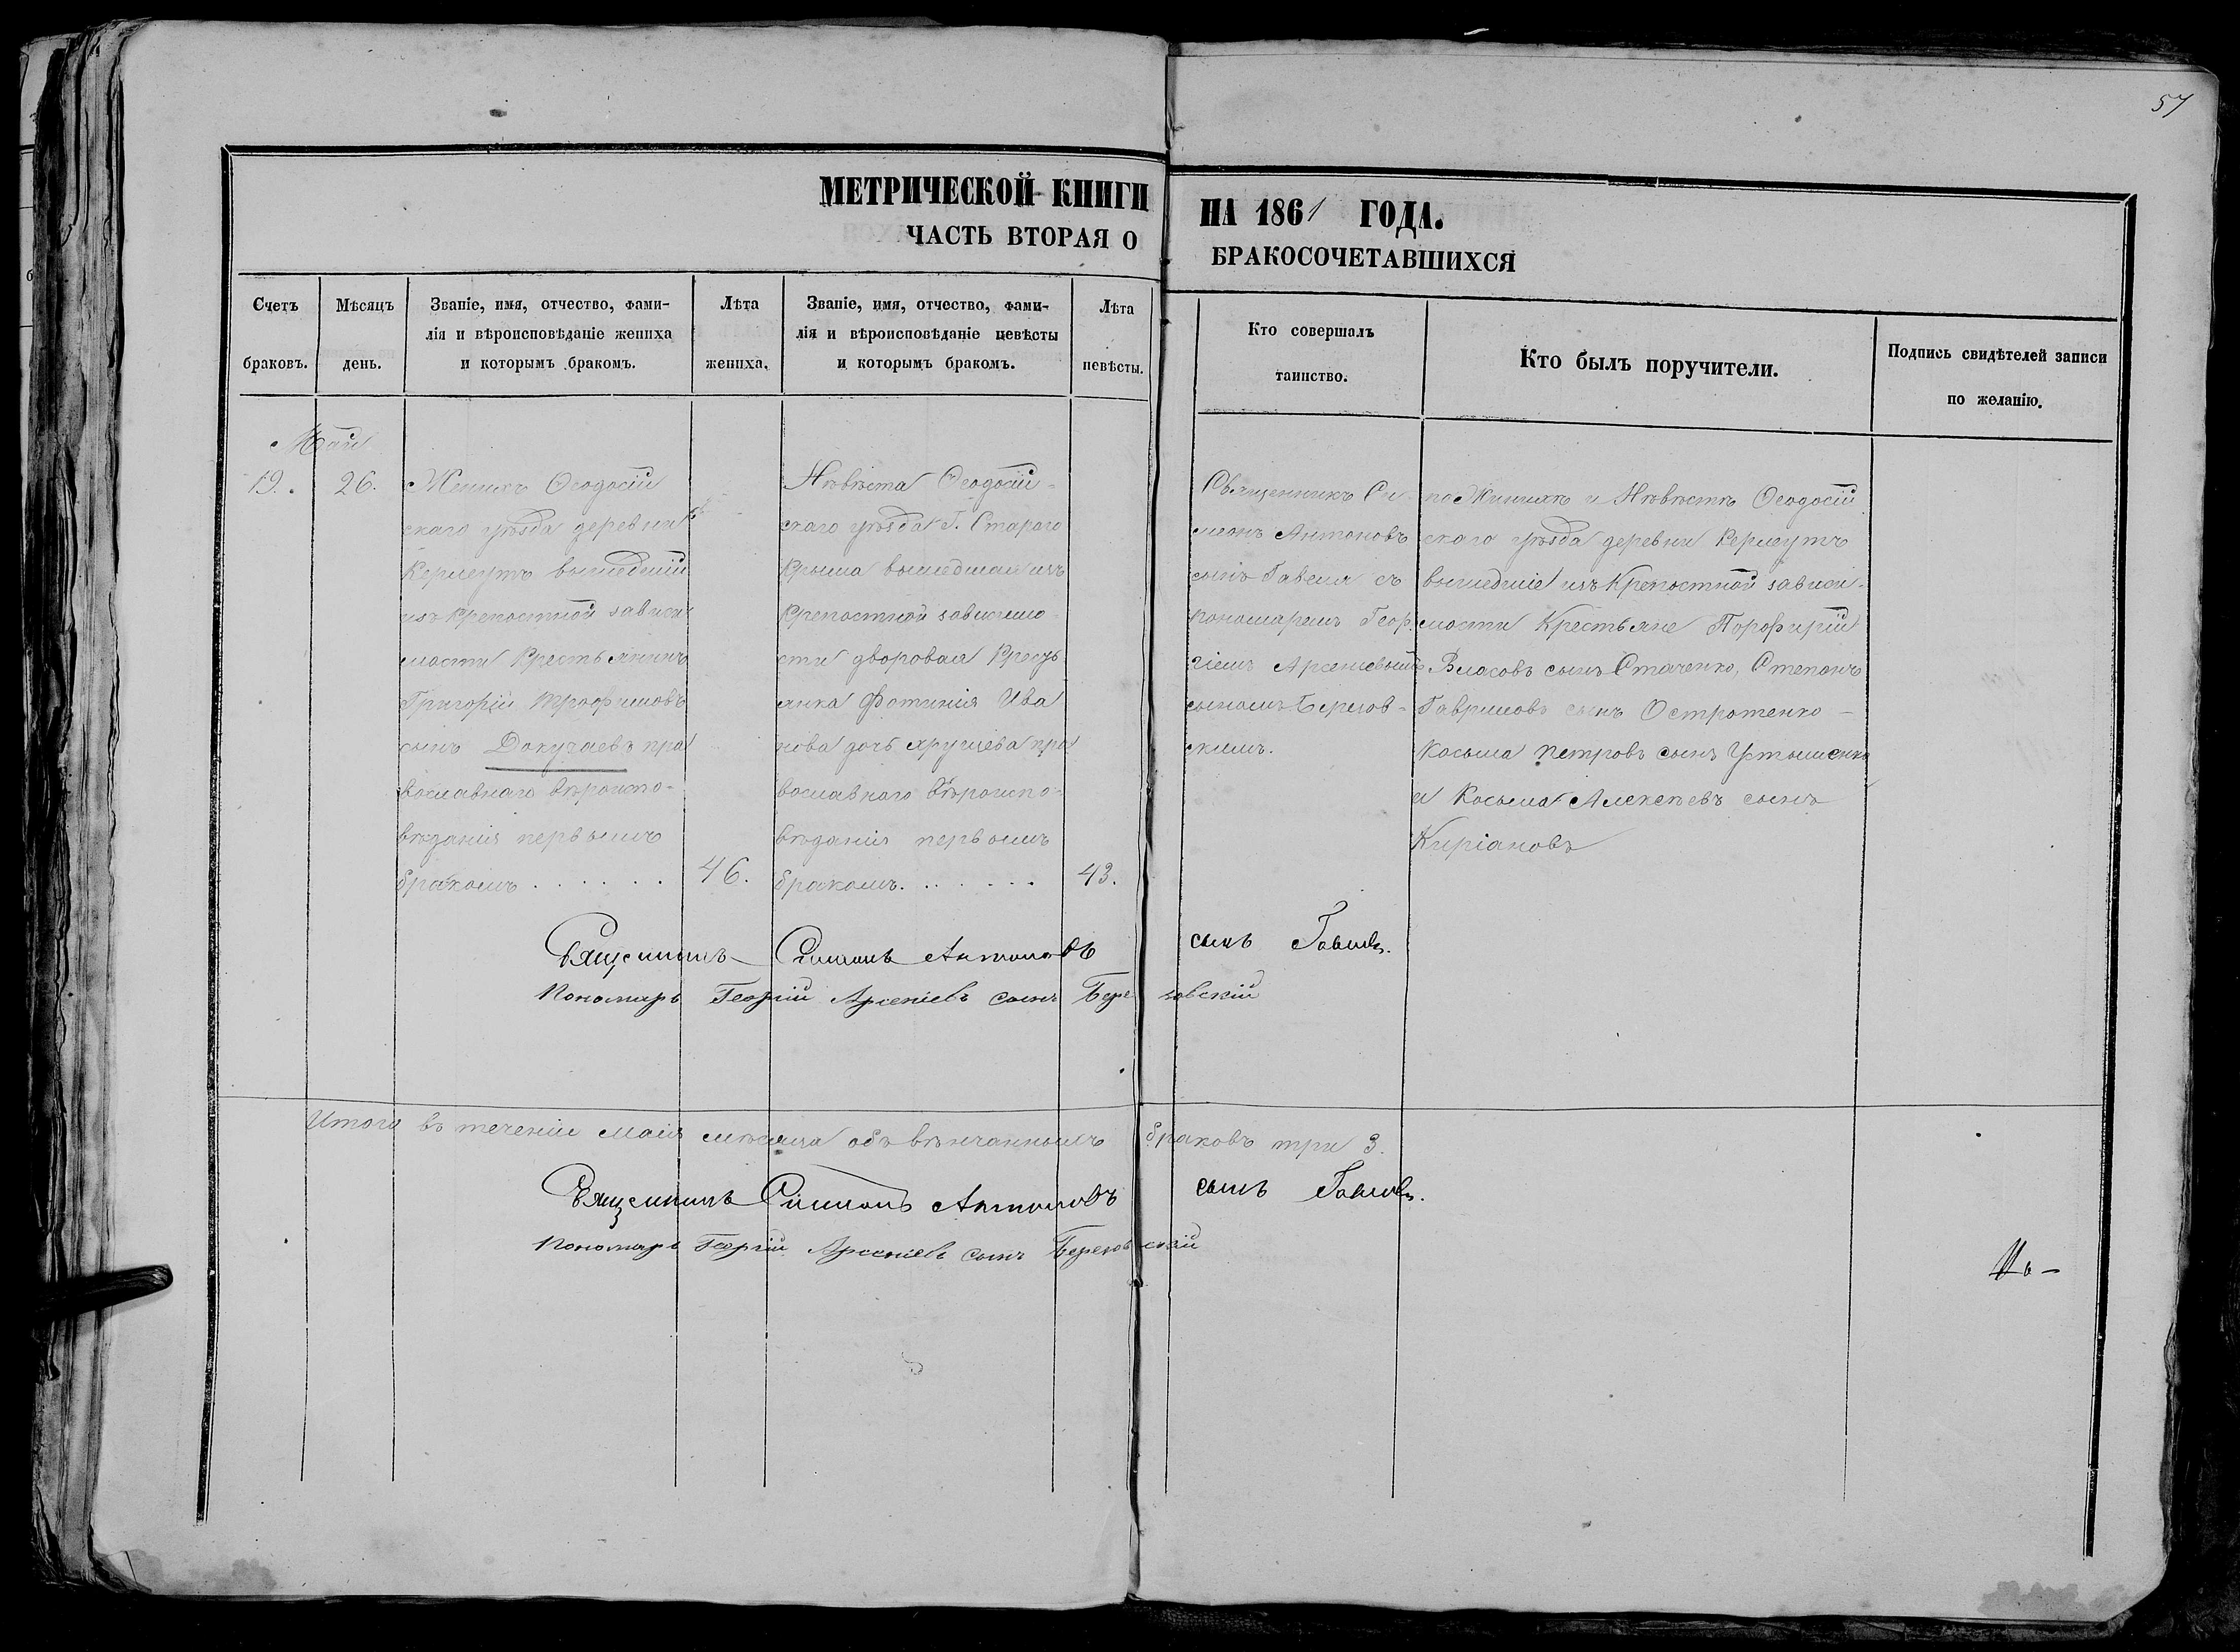 57
МЕТРИЧЕСКОЙ КНИГИ НА 1861 ГОДА.
ЧАСТЬ ВТОРАЯ О БРАКОСОЧЕТАВШИХСЯ
Счетъ
браковъ.
Мѣсяцъ
день.
Званіе, имя, отчество, фами-
лія и вѣроисповѣданіе жениха
и которымъ бракомъ.
Лѣта
жениха.
Званіе, имя, отчество, фами-
лія и вѣроисповѣданіе невѣсты
и которымъ бракомъ.
Лѣта
невѣсты.
Кто совершалъ
таинство.
Кто былъ поручители.
Подпись свидѣтелей записи
по желанію.
Май
19.
26.
Женихъ Ѳеодосій
скаго уѣзда деревни
Кермеутъ вышедшій
изъ крепостной зависи
мости Крестьянинъ
Григорій Трофимовъ
сынъ Докучаевъ пра
вославнаго вѣроиспо-
вѣданія первымъ
бракомъ . . . . . .
46.
Невѣста Ѳеодосій-
скаго уѣзда Г. Стараго
Крыма вышедшая изъ
крепостной зависимо-
сти дворовая Кресть
янка Фотинія Ива
нова дочь Хрущева пра
вославнаго вѣроиспо-
вѣданія первымъ
бракомъ. . . . . .
43.
Священникъ Си-
меонъ Антоновъ
сынъ Гавеля съ
пономаремъ Геор-
гіемъ Арсеніевымъ
сыномъ Березов-
скимъ.
по Женихѣ и Невѣстѣ Ѳеодосій
скаго уѣзда деревни Кермеутъ
вышедшіе изъ Крепостной зависи-
мости Крестьяне Порофирій
Власовъ сынъ Стаченко, Степанъ
Гавриловъ сынъ Остротенко -
Косьма Петровъ сынъ Устименко
и Косьма Алексѣевъ сынъ
Киріановъ
Священникъ Симеонъ Антоновъ сынъ Гавеля.
Пономарь Георгій Арсеніевъ сынъ Березовскій
Итого въ теченіи Маія мѣсяца обвѣнчанныхъ браковъ три 3.
Священникъ Симеонъ Антоновъ сынъ Гавеля.
Пономарь Георгій Арсеніевъ сынъ Березовскій